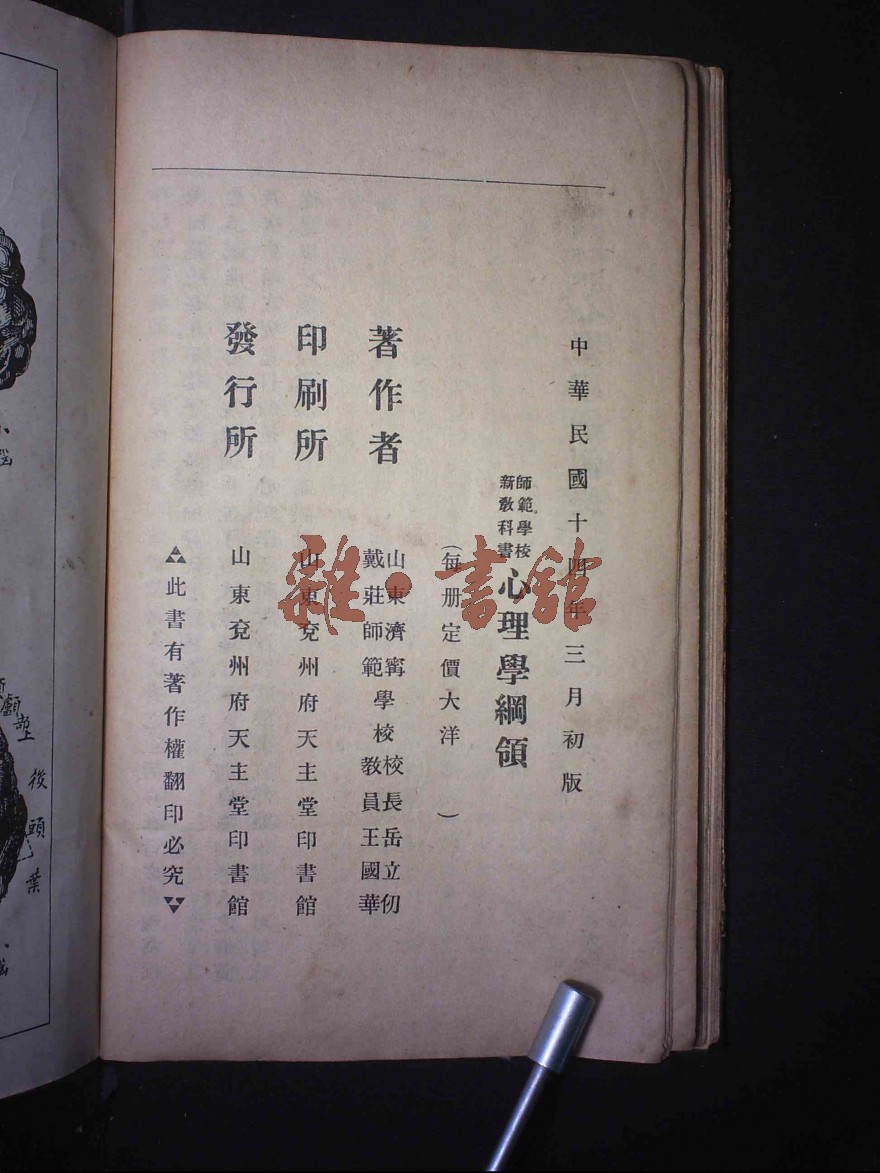 中華民國十四年三月初版
師範學校
新教科書
心理學綱領
(每册定價大洋 )
著作者
山東濟寗
戴莊師範
學校
校長岳立仞
教員王國華
印刷所
山東兗州府天主堂印書館
發行所
山東兗州府天主堂印書館
此書有著作權翻印必究
雜·書館
後頭葉